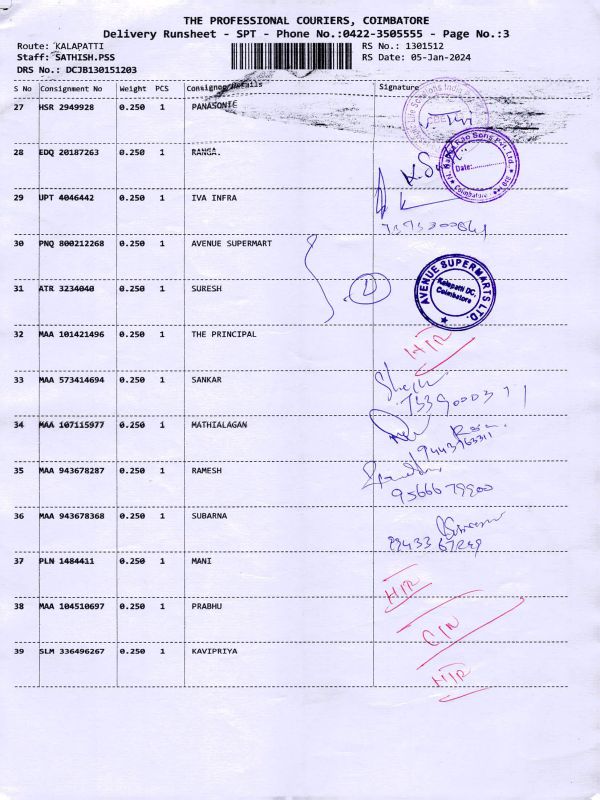 THE PROFESSIONAL COURIERS, COIMBATORE
Delivery Runsheet - SPT - Phone No.:0422-3505555 - Page No.:3
Route: KALAPATTI RS No.: 1301512
Staff: SATHISH.PSS RS Date: 05-Jan-2024
DRS No.: DCJB130151203
S No Consignment No Weight PCS Consignee Details Signature
27 HSR 2949928 0.250 1 PANASONIC
28 EDQ 20187263 0.250 1 RANGA.
Date:
Coimbatore
29 UPT 4046442 0.250 1 IVA INFRA
30 PNQ 800212268 0.250 1 AVENUE SUPERMART
31 ATR 3234040 0.250 1 SURESH
AVENUE SUPERMARTS LTD.
Kalapatti DC,
Coimbatore
32 MAA 101421496 0.250 1 THE PRINCIPAL
33 MAA 573414694 0.250 1 SANKAR
34 MAA 107115977 0.250 1 MATHIALAGAN
35 MAA 943678287 0.250 1 RAMESH
9566679900
36 MAA 943678368 0.250 1 SUBARNA
37 PLN 1484411 0.250 1 MANI
38 MAA 104510697 0.250 1 PRABHU
39 SLM 336496267 0.250 1 KAVIPRIYA